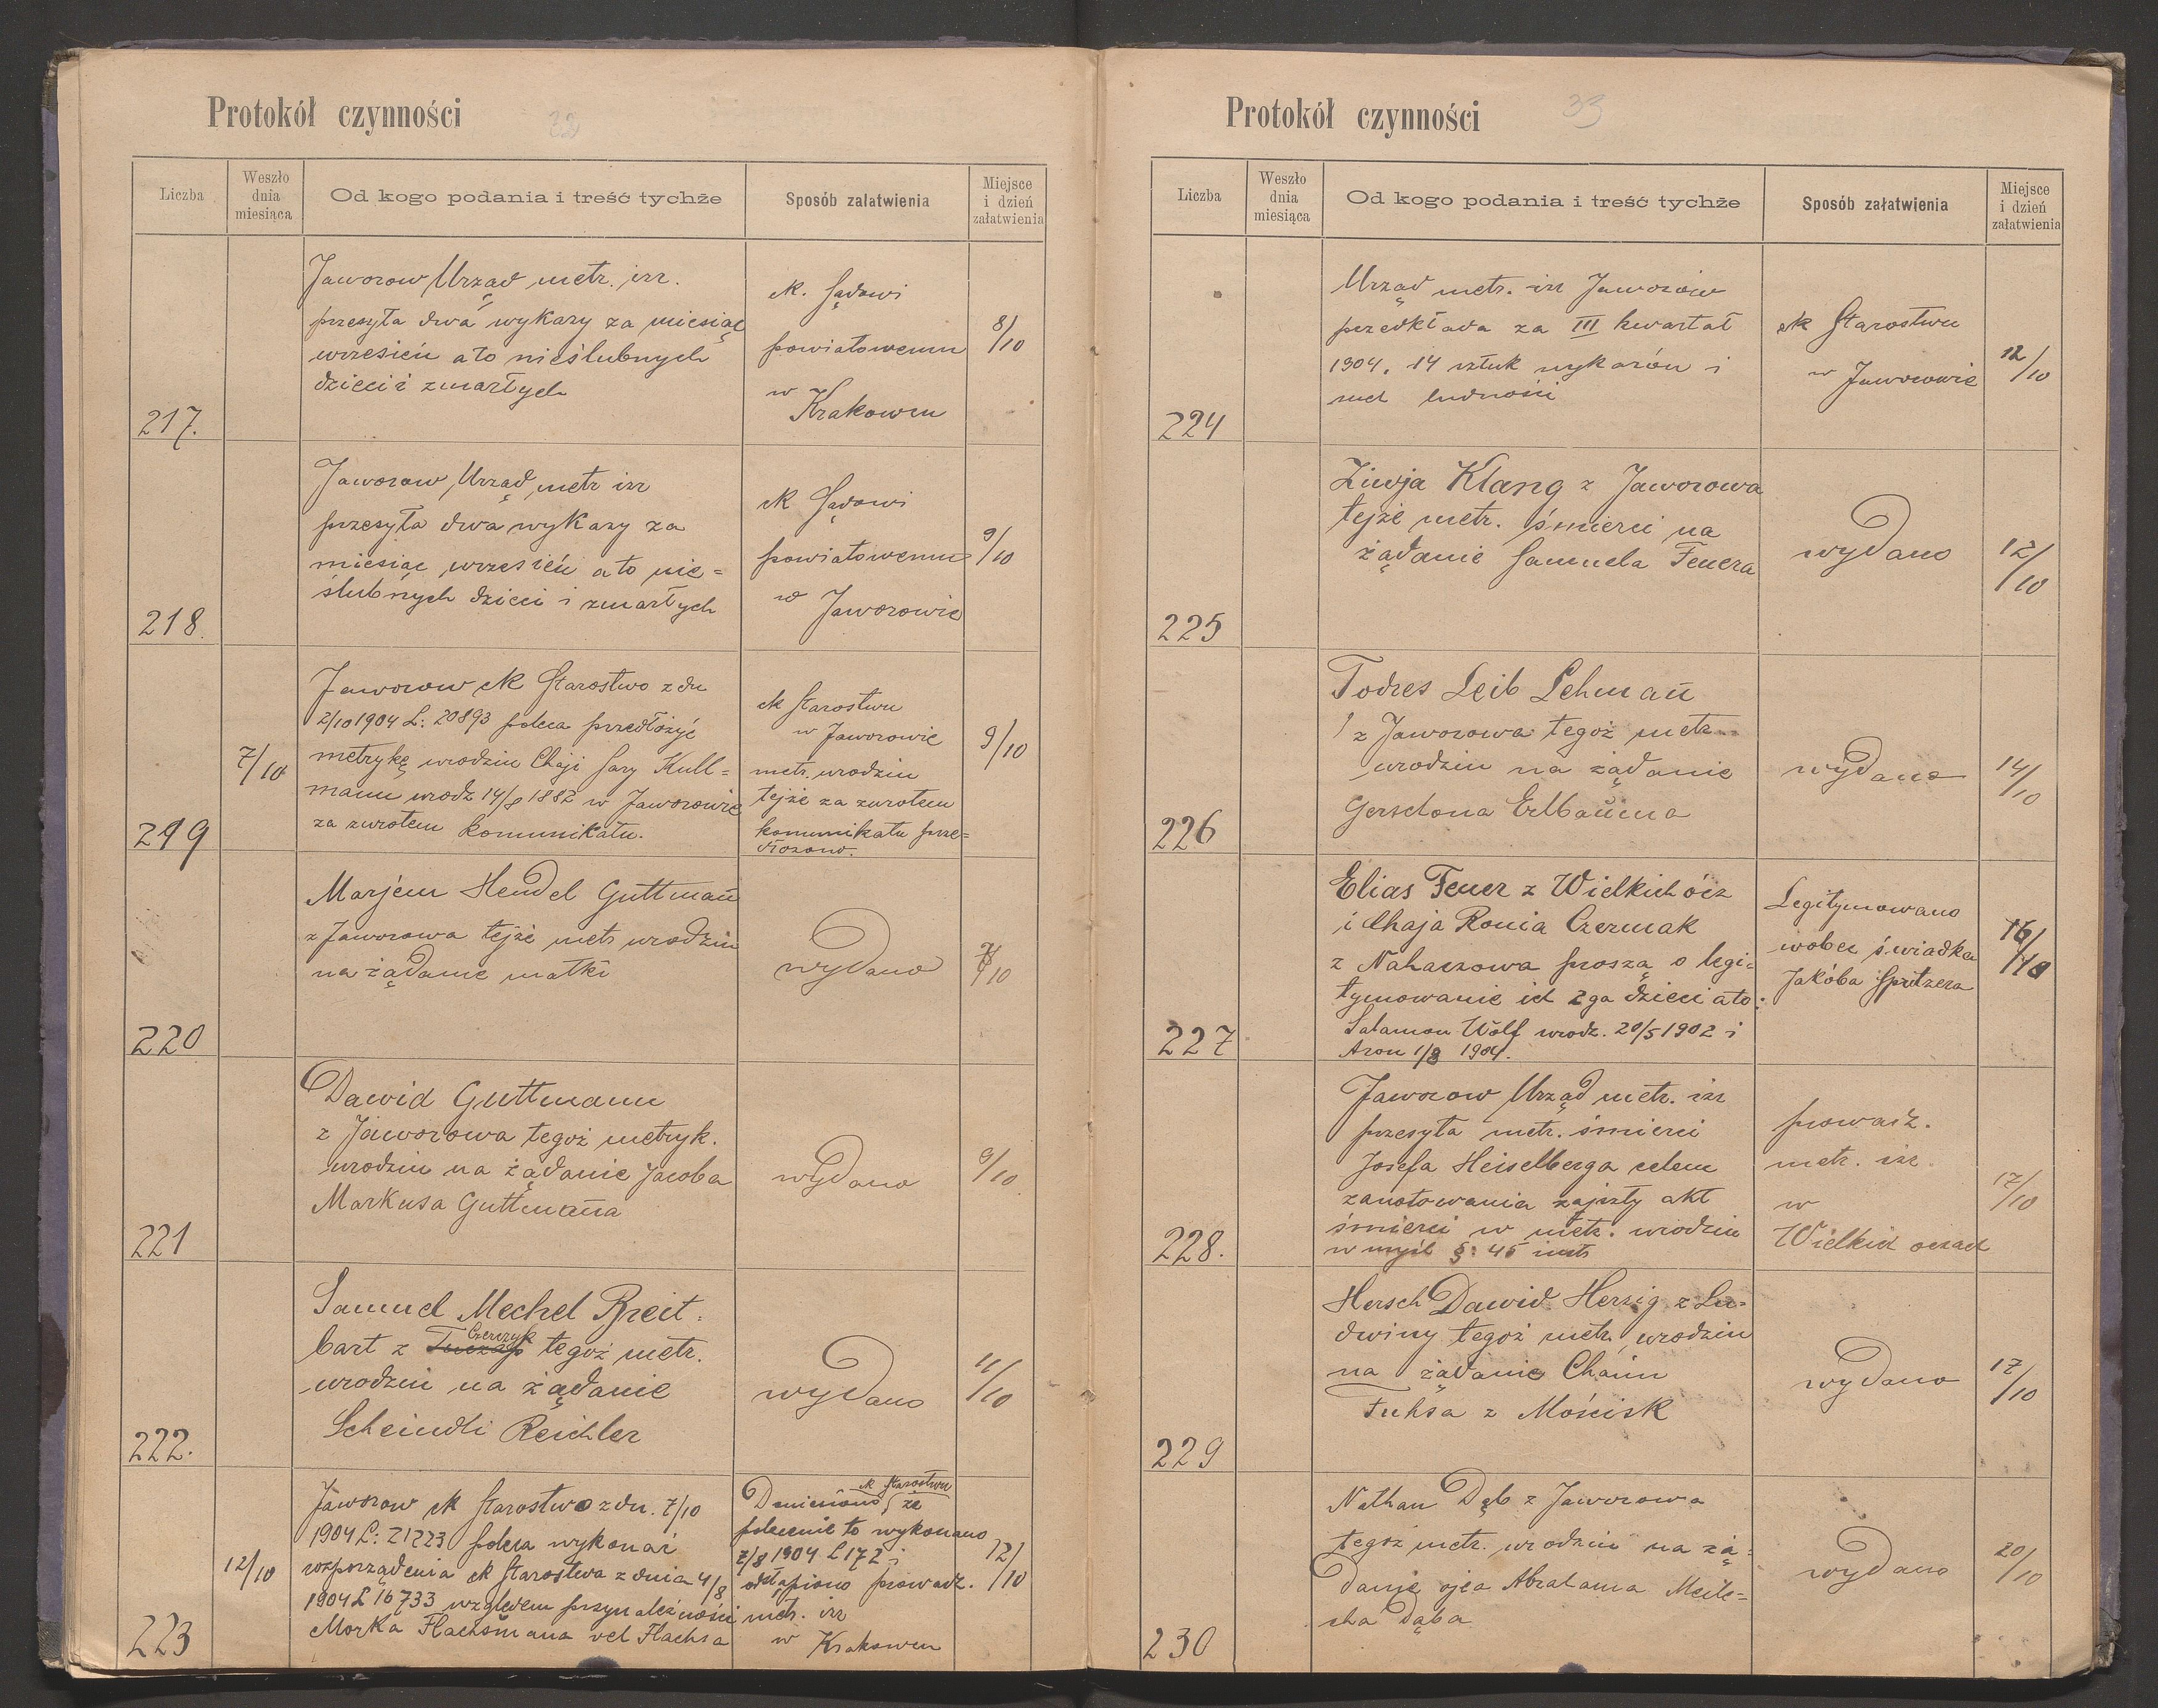 Protokół czynności 32
Liczba
Weszło dnia miesiąca
Od kogo podania i treść tychże
Sposób zalatwienia
Miejsce i dzień załatwienia
217.
Jaworow Urząd metr. izr.
przesyła dwa wykazy za miesiąc
wrzesień a to nieślubnych
dzieci i zmarłych
ck. Sądowi
powiatowemu
w
Krakowcu
8/10
218.
Jaworow Urząd metr izr
przesyła dwa wykazy za
miesiąc wrzesień a to nie=
ślubnych dzieci i zmarłych
ck Sądowi
powiatowemu
w Jaworowie
9/10
219
7/10
Jaworow ck Starostwo z dn
2/10 1904 L: 20893 poleca przedłożyć
metrykę urodzin Chaji Sary Kull=
mann urodz 14/8 1882 w Jaworowie
za zwrotem komunikatu.
ck Starostwu
w Jaworowie
metr. urodzin
tejże za zwrotem
komunikatu prze=
dłożono.
9/10
220
Marjem Hendel Guttman̄
z Jaworowa tejże metr urodzin
na żądanie matki
wydano
/10
221
Dawid Guttmann
z Jaworowa tegoż metryk.
urodzin na żądanie Jacoba
Markusa Guttman̄a
wydano
9/10
222.
Samuel Mechel Breit=
bart z Czerczyk tegoż metr.
urodzin na żądanie
Scheindli Reichler
wydano
11/10
223
12/10
Jaworow ck Starostwo z dn. 7/10
1904 L: 21223 poleca wykonać
rozporządzenia ck Starostwa z dnia 4/8
1904 L 16733 względem przynależności
Morka Flachsmana vel Flachsa
ck Starostwu
Doniesiono że
polecenie to wykonano
7/8 1904 L 172 i
odstąpiono prowadz.
metr. izr
w Krakowcu
12/10
Protokół czynności 33
Liczba
Weszło dnia miesiąca
Od kogo podania i treść tychże
Sposób załatwienia
Miejsce i dzień załatwienia
224
Urząd metr. izr Jaworów
przedkłada za III kwartał
1904. 14 sztuk wykazów i
ruch ludności
ck Starostwu
w Jaworowie
12/10
225
Ziwja Klang z Jaworowa
tejże metr. śmierci na
żądanie Samuela Feuera
wydano
12/10
226
Todres Leib Lehman̄
z Jaworowa tegoż metr
urodzin na żądanie
Gerschona Erlbauma
wydano
14/10
227
Elias Feuer z Wielkichócz
i Chaja Ronia Czermak
z Nahaczowa proszą o legi=
tymowanie ich 2ga dzieci a to:
Salamon Wolf urodz. 20/5 1902 i
Aron 1/8 1904.
Legitymowano
wobec świadka
Jakóba Spritzera
16/10
228.
Jaworow Urząd metr. izr
przesyła metr. śmierci
Josefa Heiselberga celem
zanotowania zajszły akt
śmierci w metr. urodzin
w myśl §. 45 instr
prowadz.
metr. izr.
w
Wielkich oczach
17/10
229
Hersch Dawid Herzig z Lu=
dwiny tegoż metr urodzin
na żądanie Chaim
Fuhsa z Mościsk
wydano
17/10
230
Nathan Dąb z Jaworowa
tegoż metr. urodzin na żą=
danie ojca Abrahama Meile=
cha Dąba
wydano
20/10